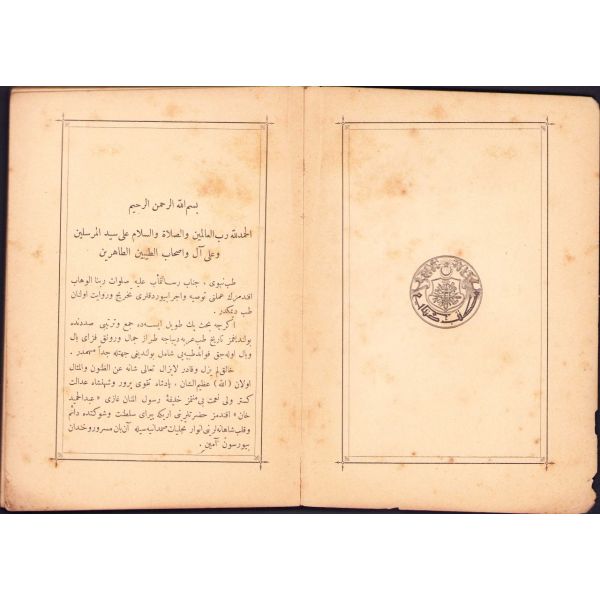 بسم الله الرحمن الرحيم
الحمدلله رب العالمين والصلاة والسلام على سيد المرسلين
وعلى آل واصحاب الطيبين الطاهرين
طب نبوى ، جناب رسالتمآب عليه صلوات ربنا الوهاب
افندمزك عملنى توصيه واجرا بيوردقلرى تخريج وروايت اولنان
طب ديمكدر .
اكرچه بحث پك طويل ايسه ده جمع وترتيبى صددنده
بولنديغمز تاريخ طب عربه ديباجه طراز جمال ورونق فزاى بال
وبال اوله جق فوائد طبيه يى شامل بولنديغى جهتله جداً مهمدر .
خالق لم يزل وقادر لايزال تعالى شانه عن الظنون والمثال
اولان (الله) عظيم الشان ، پادشاه تقوى پرور وشهنشاه عدالت
كستر ولى نعمت بى منتمز خليفهٔ رسول المنان غازى «عبدالحميد
خان» افندمز حضرتلرينى اريكه پيراى سلطنت وشوكتده دائم
وقلب شاهانه لرينى انوار تجليات صمدانيه سيله آن بآن مسرور وخندان
بيورسون آمين .